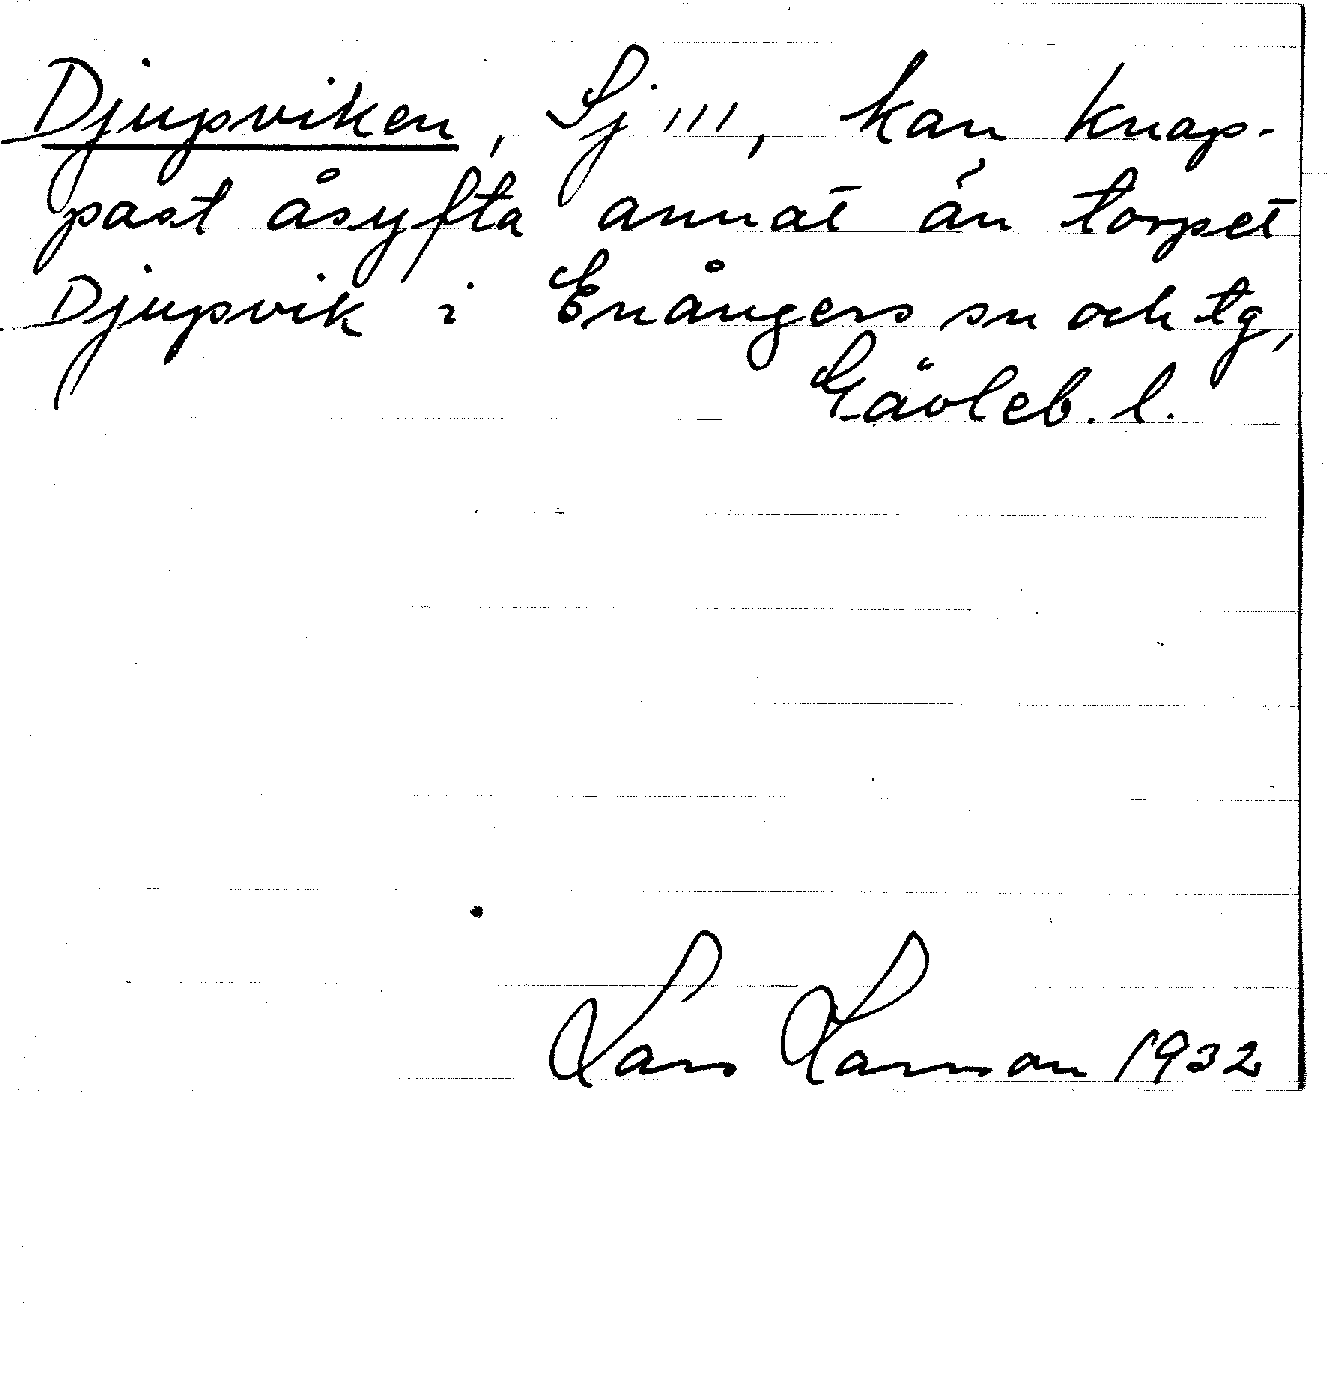 Djupviken, Sj 111, kan knap-
past åsyfta annat än torpet
Djupvik i Enångers sn och tg,
Gävleb. l.
Lars Larson 1932